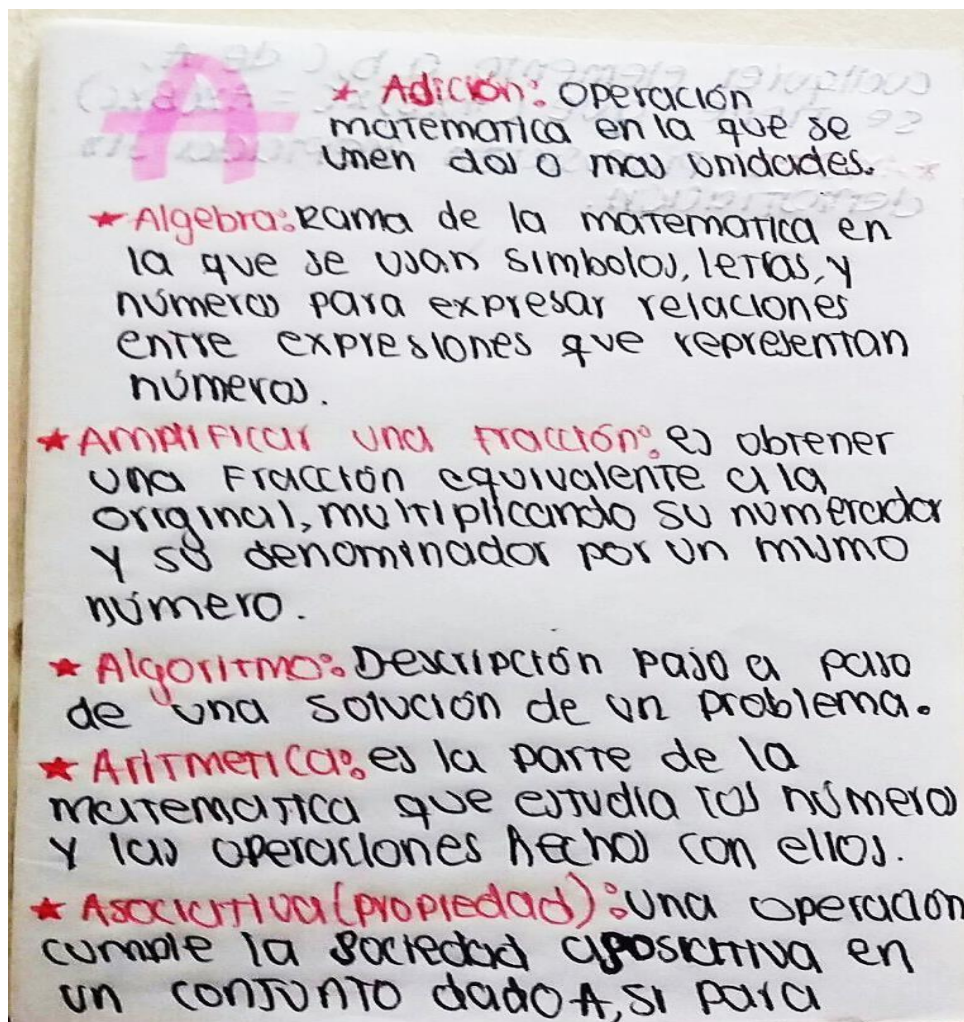 A
* Adición: Operación
matematica en la que se
unen dos o mas unidades.
* Algebra: Rama de la matematica en
la que se usan simbolos, letras, y
números para expresar relaciones
entre expresiones que representan
números.
* Amplificar una Fracción: es obtener
una Fracción equivalente a la
original, multiplicando su numerador
y su denominador por un mismo
número.
* Algoritmo: Descripción paso a paso
de una solución de un problema.
* Aritmetica: es la parte de la
matematica que estudia los números
y las operaciones hechas con ellos.
* Asociativa (propiedad): Una operación
cumple la en
un conjunto dado A, si para